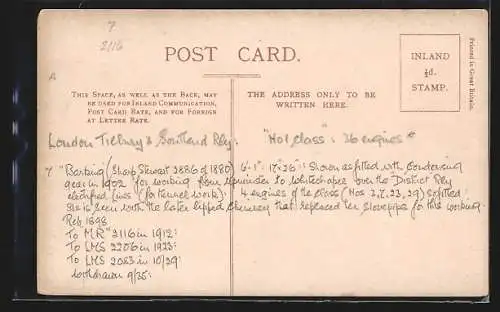 7
2/16
POST CARD.
INLAND
½d.
STAMP.
Printed in Great Britain.
THIS SPACE, AS WELL AS THE BACK, MAY
BE USED FOR INLAND COMMUNICATION,
POST CARD RATE, AND FOR FOREIGN
AT LETTER RATE.
THE ADDRESS ONLY TO BE
WRITTEN HERE.
London Tilbury & Southend Rly. "No1 class": 36 engines
7 "Barking" (Sharp Stewart 2886 of 1880) 6'-1" 17×26": Shown as fitted with condensing
gear in 1902 for working from Upminster to Whitechapel over the "District Rly
electrified lines (for tunnel work). 4 engines of the class (Nos 3, 7, 23, 29) so fitted.
She is seen with the later lipped chimney that replaced the stovepipe for this working.
Reb 1898
To MR 2116 in 1912:
To LMS 2206 in 1923:
To LMS 2083 in 10/29
Withdrawn 9/35: